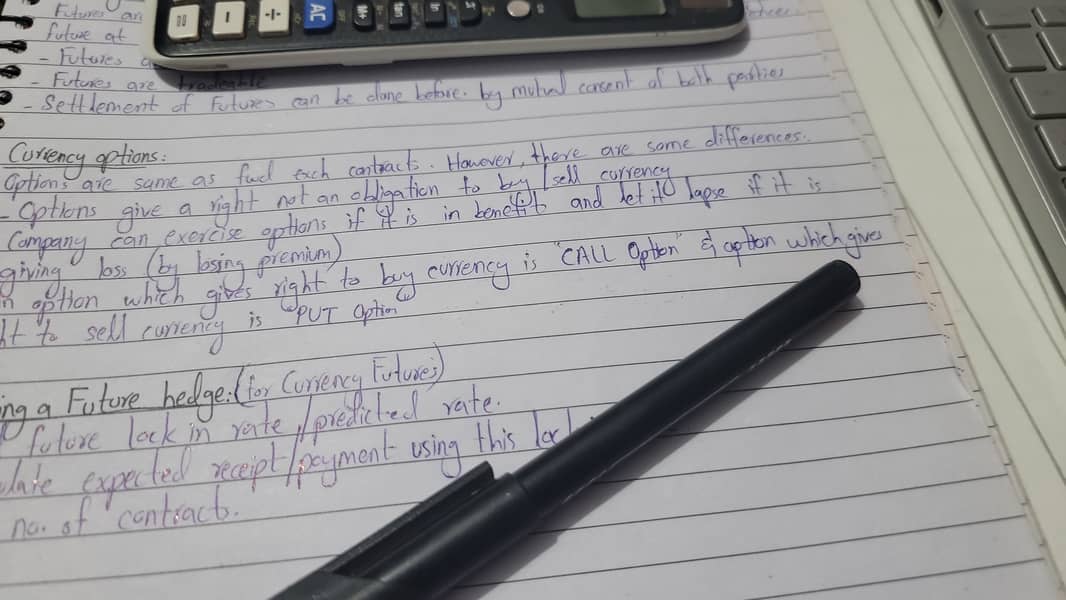 Futures
future at
- Futures
- Futures are tradeable
- Settlement of Futures can be done before. by mutual consent of both parties
Currency options:
Options are same as fwd exch contracts. However, there are some differences.
- Options give a right not an obligation to buy/sell currency
Company can exercise options if it is in benefit and let it lapse if it is
giving loss (by losing premium)
n option which gives right to buy currency is "CALL Option" & option which gives
ht to sell currency is "PUT Option"
ing a Future hedge: (for Currency Futures)
future lock in rate/predicted rate.
late expected receipt/payment using this
no. of contracts.
AC
tan
ln